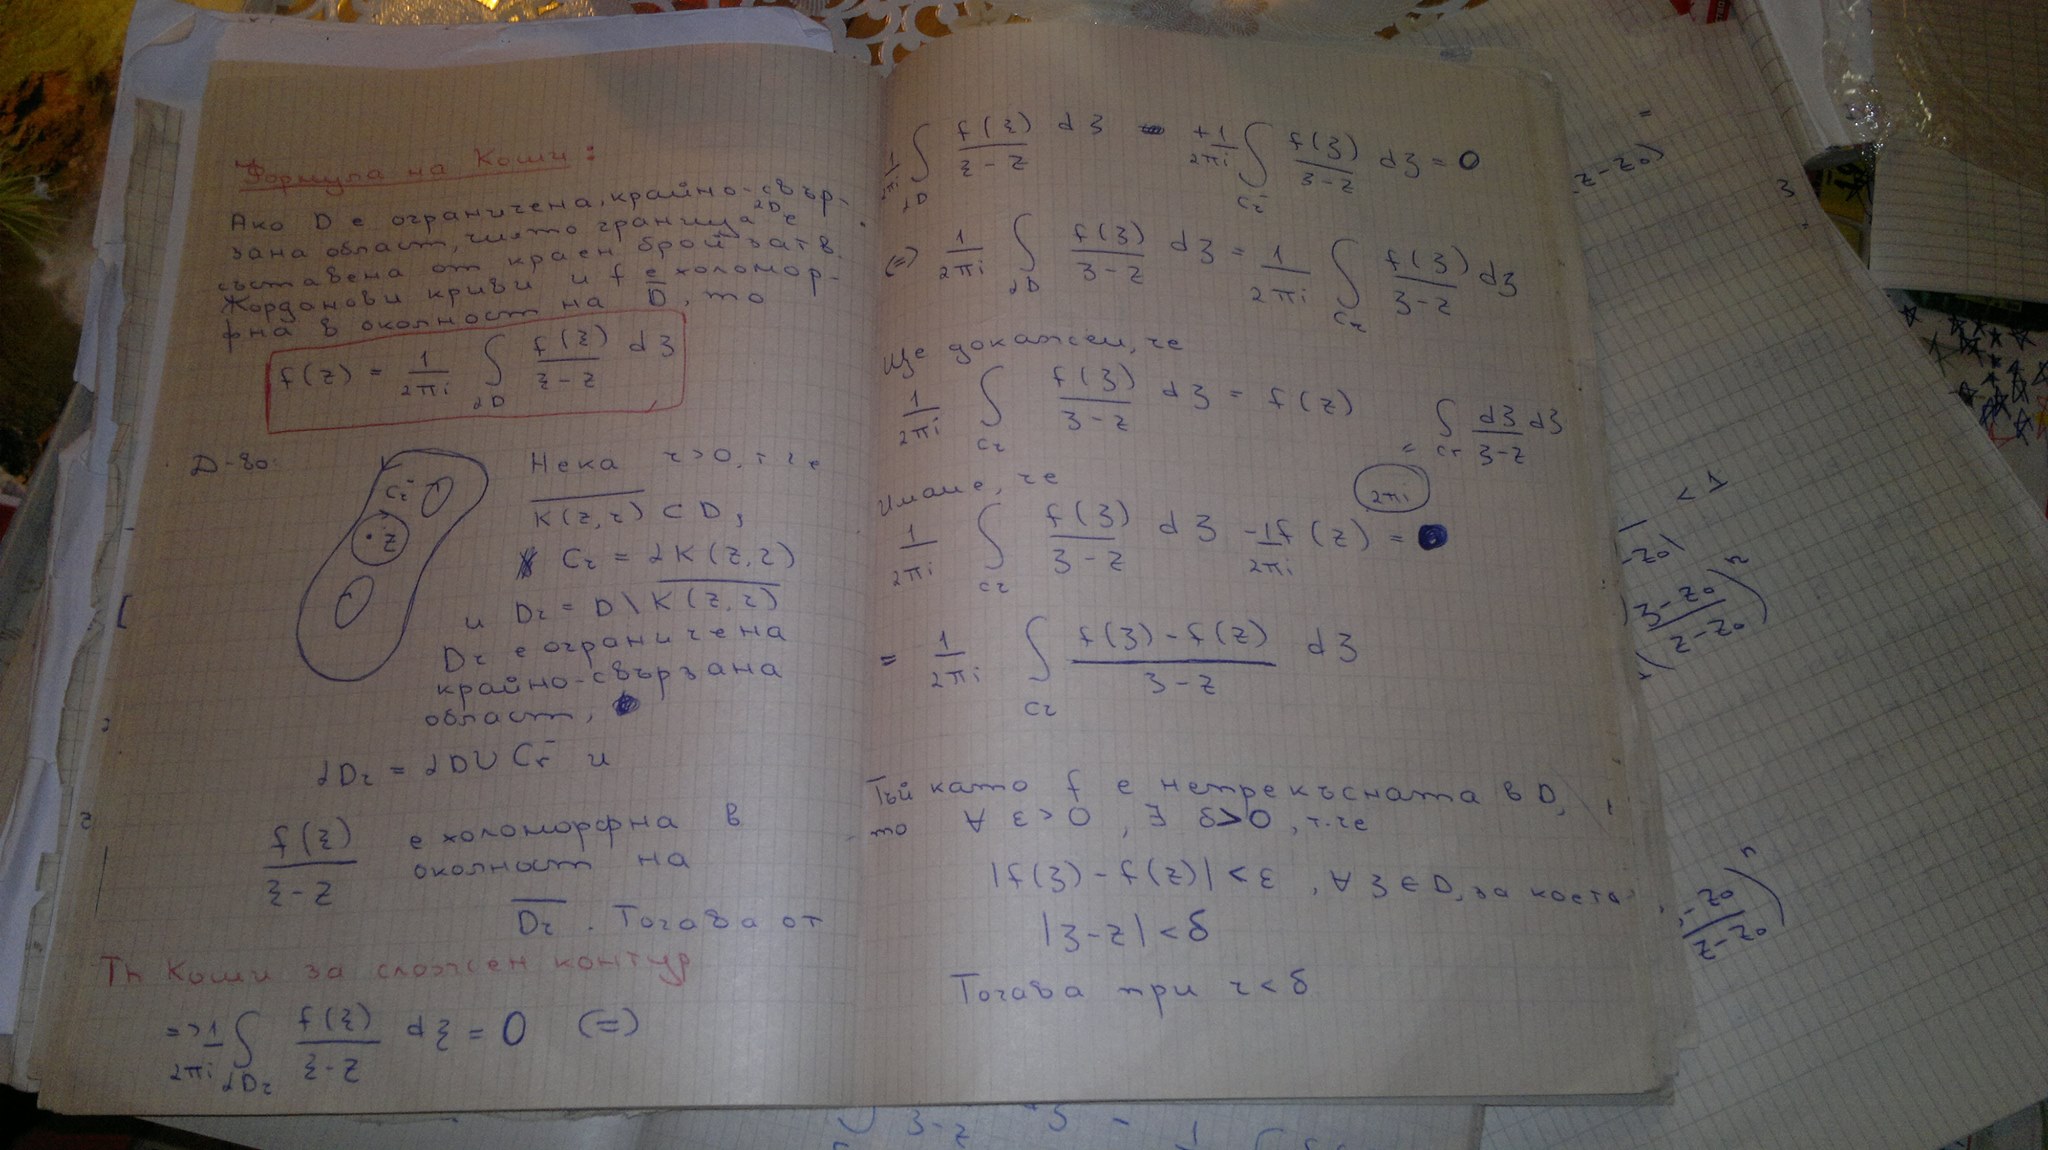 Формула на Коши:
Ако D е ограничена, крайно-свър-
зана област, чиято граница ∂D е
съставена от краен брой затв.
Жорданови криви и f е холомор-
фна в околност на D̅, то
f(z) = 1/2πi ∫∂D f(ξ)/ξ-z dξ
Д-во:
Cr⁻
z
Нека r>0, т.че
K̅(̅z̅,̅r̅)̅ ⊂ D,
Cr = ∂K(z,r)
и Dr = D \ K̅(̅z̅,̅r̅)̅
Dr е ограничена
крайно-свързана
област,
∂Dr = ∂D ∪ Cr⁻ и
f(ξ)/ξ-z е холоморфна в
околност на
D̅r̅. Тогава от
Th Коши за сложен контур
=> 1/2πi ∫∂Dr f(ξ)/ξ-z dξ = 0 (=)
1/2πi ∫∂D f(ξ)/ξ-z dξ + 1/2πi ∫Cr⁻ f(ξ)/ξ-z dξ = 0
(=) 1/2πi ∫∂D f(ξ)/ξ-z dξ = 1/2πi ∫Cr f(ξ)/ξ-z dξ
Ще докажем, че
1/2πi ∫Cr f(ξ)/ξ-z dξ = f(z)
= ∫Cr dξ/ξ-z dξ
Имаме, че
2πi
1/2πi ∫Cr f(ξ)/ξ-z dξ - 1/2πi f(z) =
= 1/2πi ∫Cr f(ξ)-f(z)/ξ-z dξ
Тъй като f е непрекъсната в D,
то ∀ ε>0, ∃ δ>0, т.че
|f(ξ)-f(z)| < ε, ∀ ξ ∈ D, за коeто
|ξ-z| < δ
Тогава при r < δ
z-z₀)
=
< 1
-z₀)
(ξ-z₀/z-z₀)ⁿ
-z₀/z-z₀)ⁿ
ξ-z